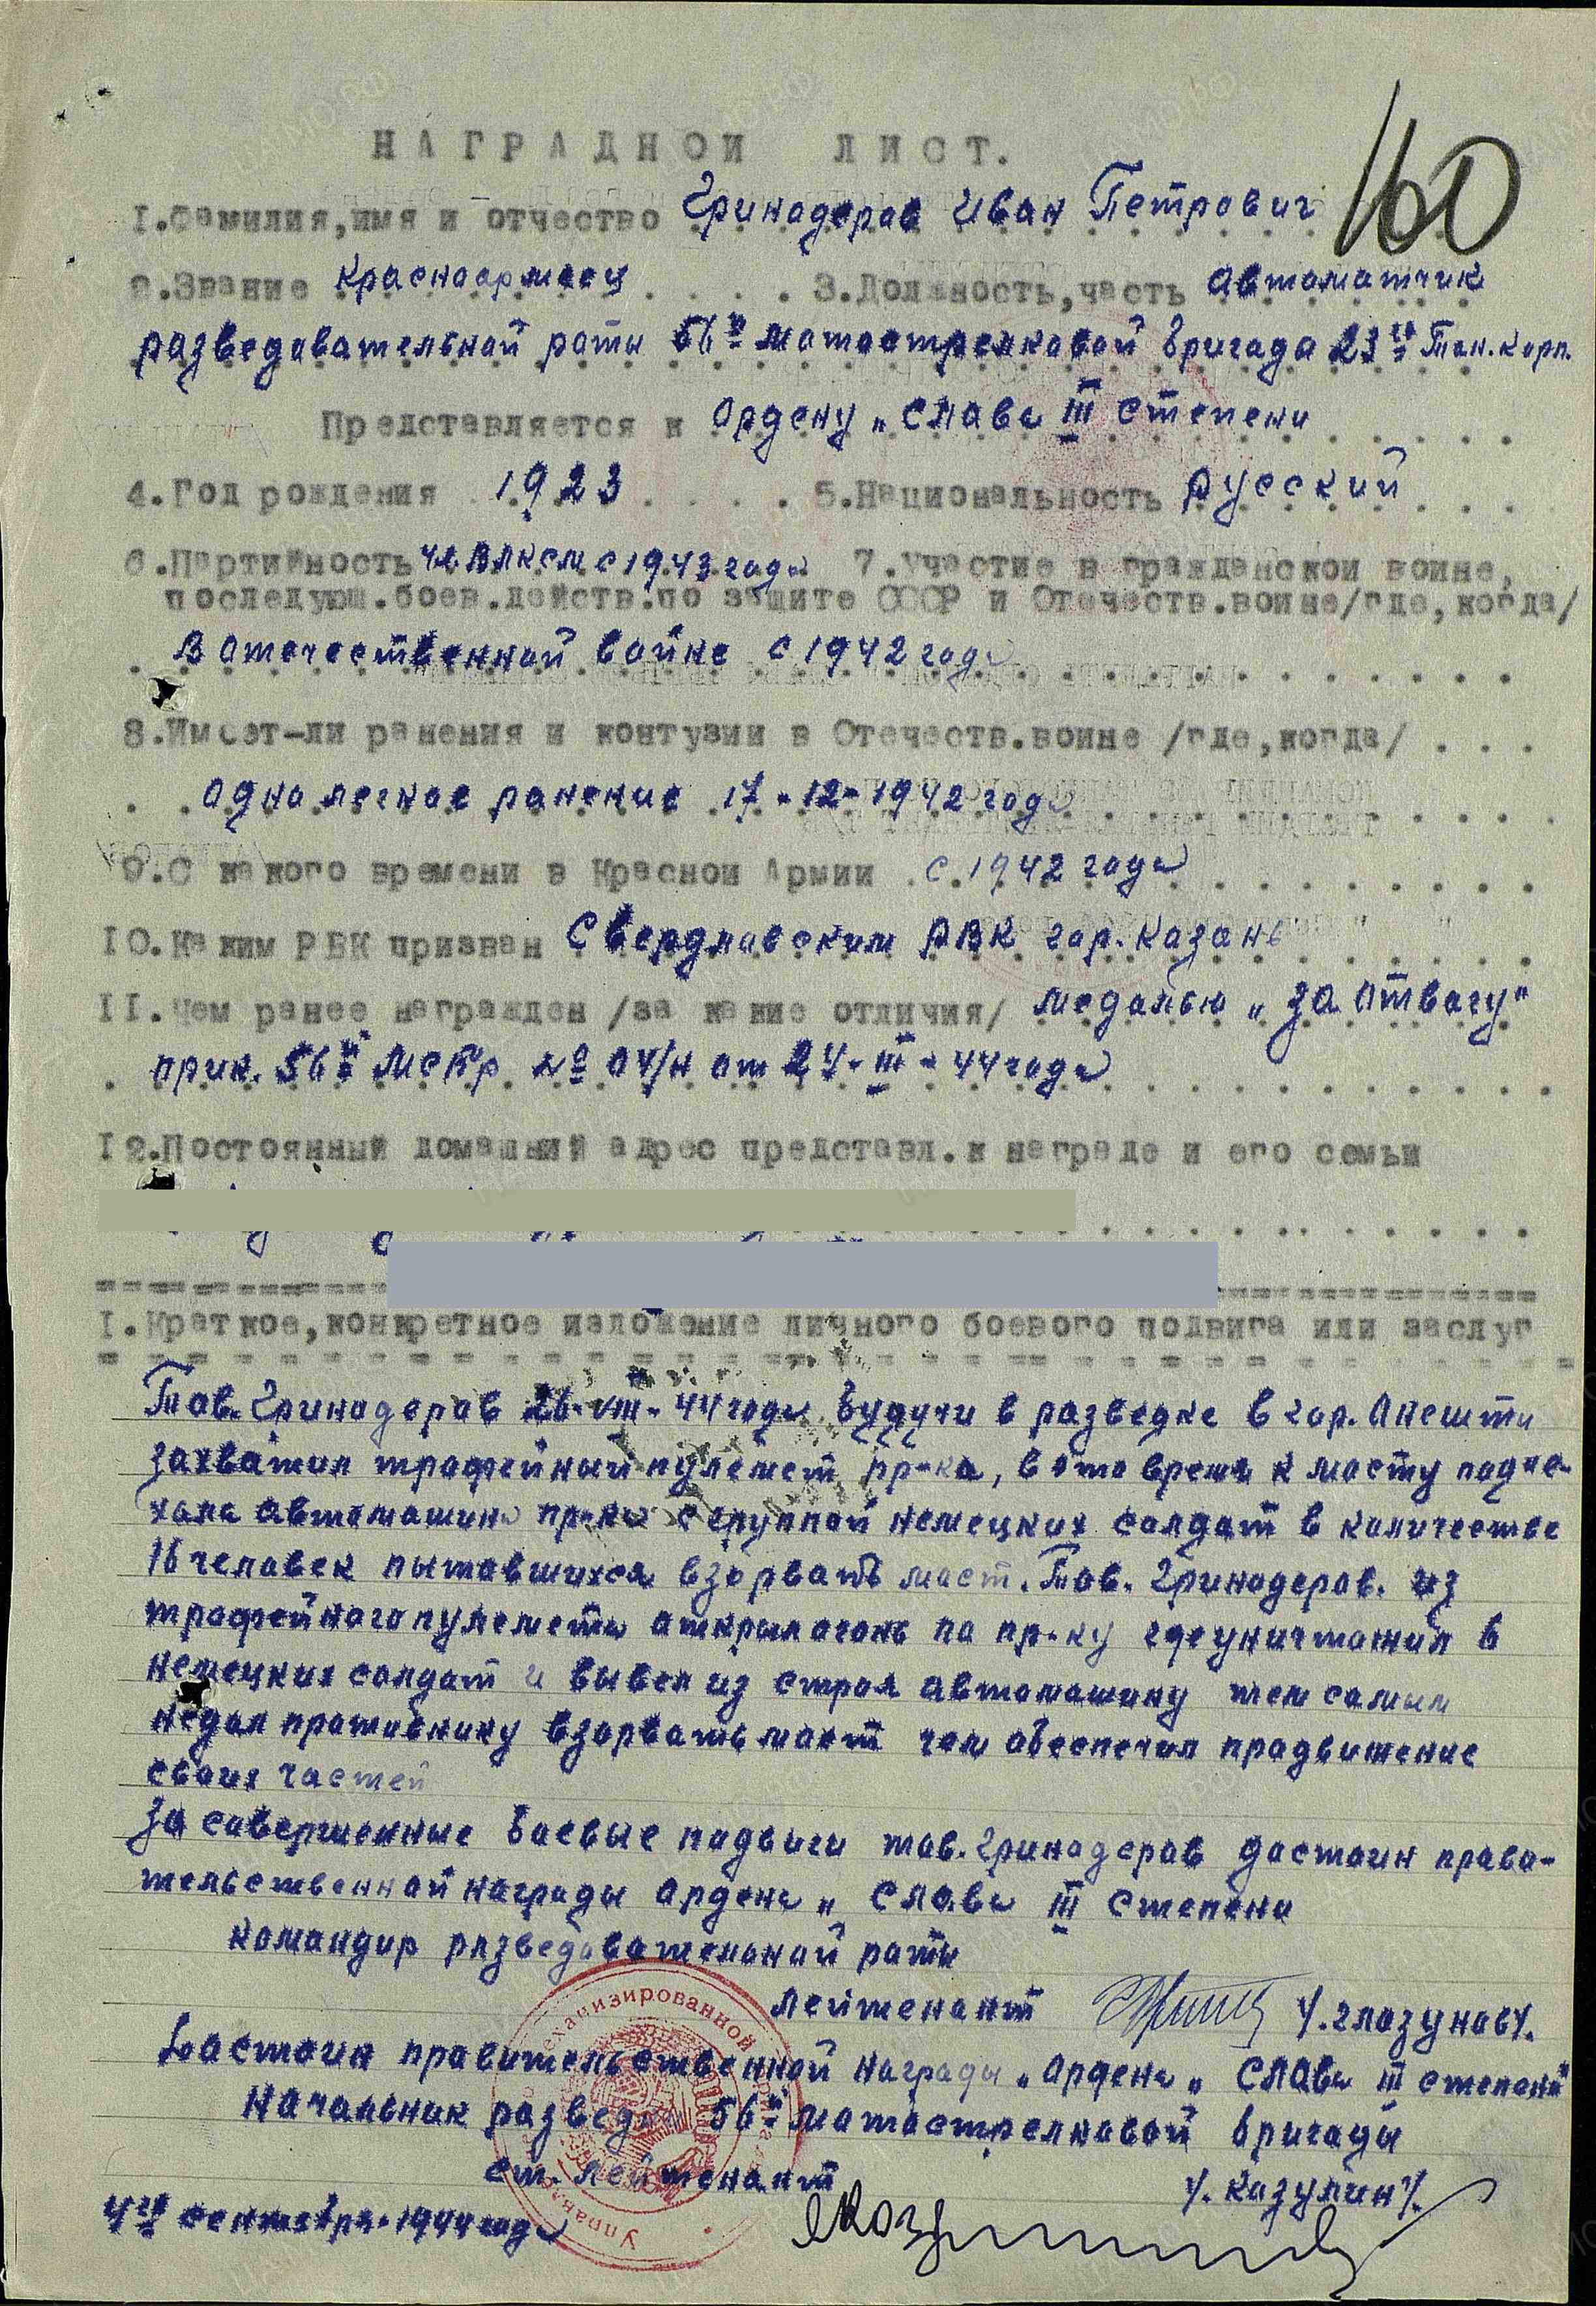 НАГРАДНОЙ ЛИСТ.
160
1.Фамилия,имя и отчество Гринадеров Иван Петрович
2.Звание Красноармеец 3.Должность,часть автоматчик
разведовательной роты 56й мотострелковой бригады 23го Тан. корп.
Представляется к Ордену „Слава III степени
4.Год рождения 1923 5.Национальность русский
6.Партийность чл. ВЛКСМ с 1943 года 7.Участие в гражданской войне,
последующ.боев.действ.по защите СССР и Отечеств.войне/где,когда/
В отечественной войне с 1942 года
8.Имеет-ли ранения и контузии в Отечеств.войне /где,когда/
одно легкое ранение 17-12-1942 года
9.С какого времени в Красной Армии с 1942 года
10.Каким РВК призван Свердловским РВК гор. Казань
11.Чем ранее награжден /за какие отличия/ медалью „За отвагу"
прик. 56й МСБр № 04/н от 24-III-44 года
12.Постоянный домашний адрес представл.к награде и его семьи
1.Краткое,конкретное изложение личного боевого подвига или заслуг
Тов. Гринадеров 26-VIII-44 года будучи в разведке в гор. Анешти
захватил трофейный пулемет пр-ка, в это время к мосту подъе-
хала автомашина пр-ка с группой немецких солдат в количестве
16 человек пытавшихся взорвать мост. Тов. Гринадеров. из
трофейного пулемета открыл огонь по пр-ку где уничтожил 6
немецких солдат и вывел из строя автомашину тем самым
недал противнику взорвать мост чем обеспечил продвижение
своих частей
За совершенные боевые подвиги тов. Гринадеров достоин прави-
тельственной награды ордена „Слава III степени
Командир разведовательной роты
лейтенант /.Глазунов/.
Достоин правительственной награды „ордена „Слава III степени"
Начальник разведки 56й мотострелковой бригады
ст. лейтенант /.Козулин/.
4го сентября 1944 года
механизированной
Управл